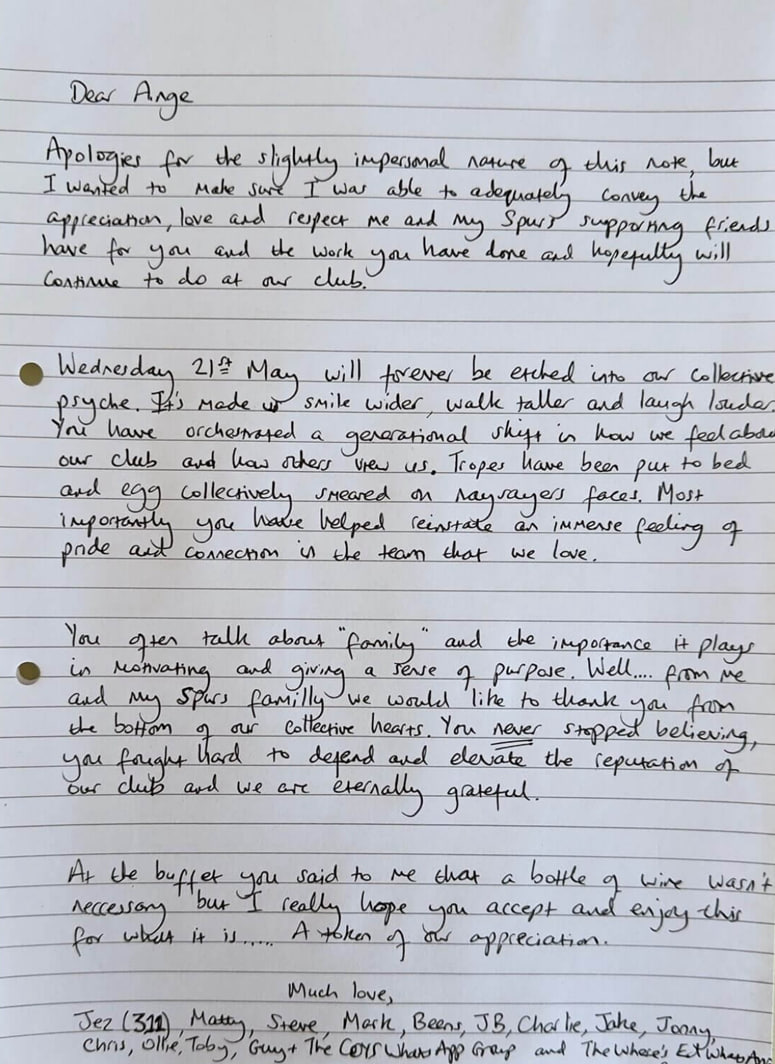 Dear Ange
Apologies for the slightly impersonal nature of this note, but
I wanted to make sure I was able to adequately convey the
appreciation, love and respect me and my Spurs supporting friends
have for you and the work you have done and hopefully will
continue to do at our club.
Wednesday 21st May will forever be etched into our collective
psyche. It's made us smile wider, walk taller and laugh louder.
You have orchestrated a generational shift in how we feel abou
our club and how others view us. Tropes have been put to bed
and egg collectively smeared on naysayers faces. Most
importantly you have helped reinstate an immense feeling of
pride and connection in the team that we love.
You often talk about "family" and the importance it plays
in motivating and giving a sense of purpose. Well.... from me
and my Spurs familly we would like to thank you from
the bottom of our collective hearts. You never stopped believing,
you fought hard to defend and elevate the reputation of
our club and we are eternally grateful.
At the buffet you said to me that a bottle of wine wasn't
neccessary but I really hope you accept and enjoy this
for what it is..... A token of our appreciation.
Much love,
Jez (311), Matty, Steve, Mark, Beens, JB, Charlie, Jake, Jonny,
Chris, Ollie, Toby, Guy + The COYS WhatsApp Group and The Where's